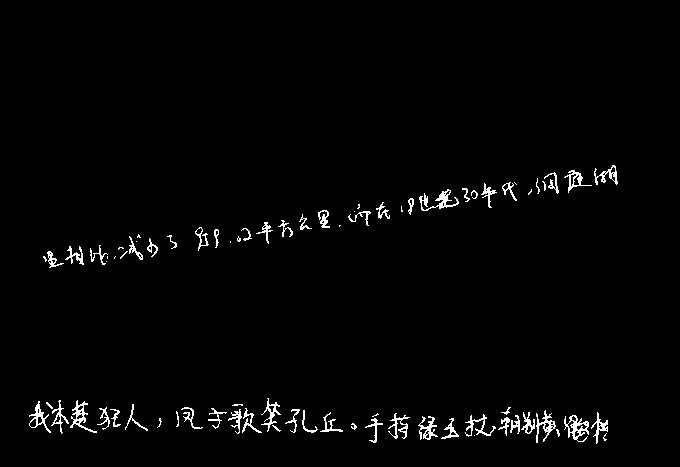 里相比,减少了89.02平方公里,而在18世纪30年代,洞庭湖
我本楚狂人,凤于歌笑孔丘。手持绿玉杖,朝别黄鹤楼